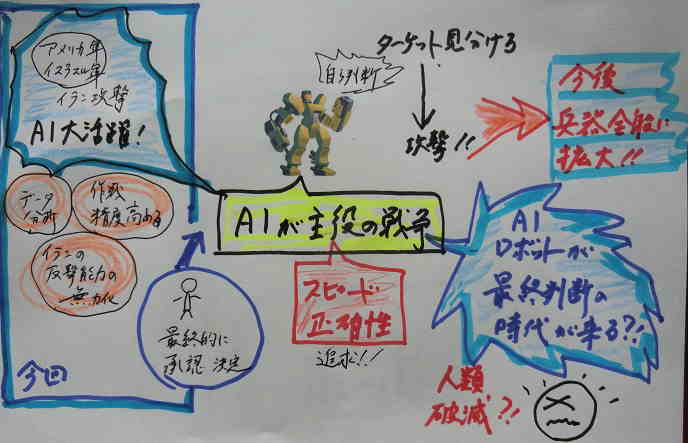 アメリカ軍
イスラエル軍
イラン攻撃
AI大活躍!
データ
分析
作戦
精度高める
イランの
反撃能力の
無力化
今回
最終的に
承認 決定
AIが主役の戦争
自ら判断
ターゲット見分ける
攻撃!!
今後
兵器全般に
拡大!!
スピード
正確性
追求!!
AI
ロボットが
最終判断の
時代が来る?!
人類
破滅?!